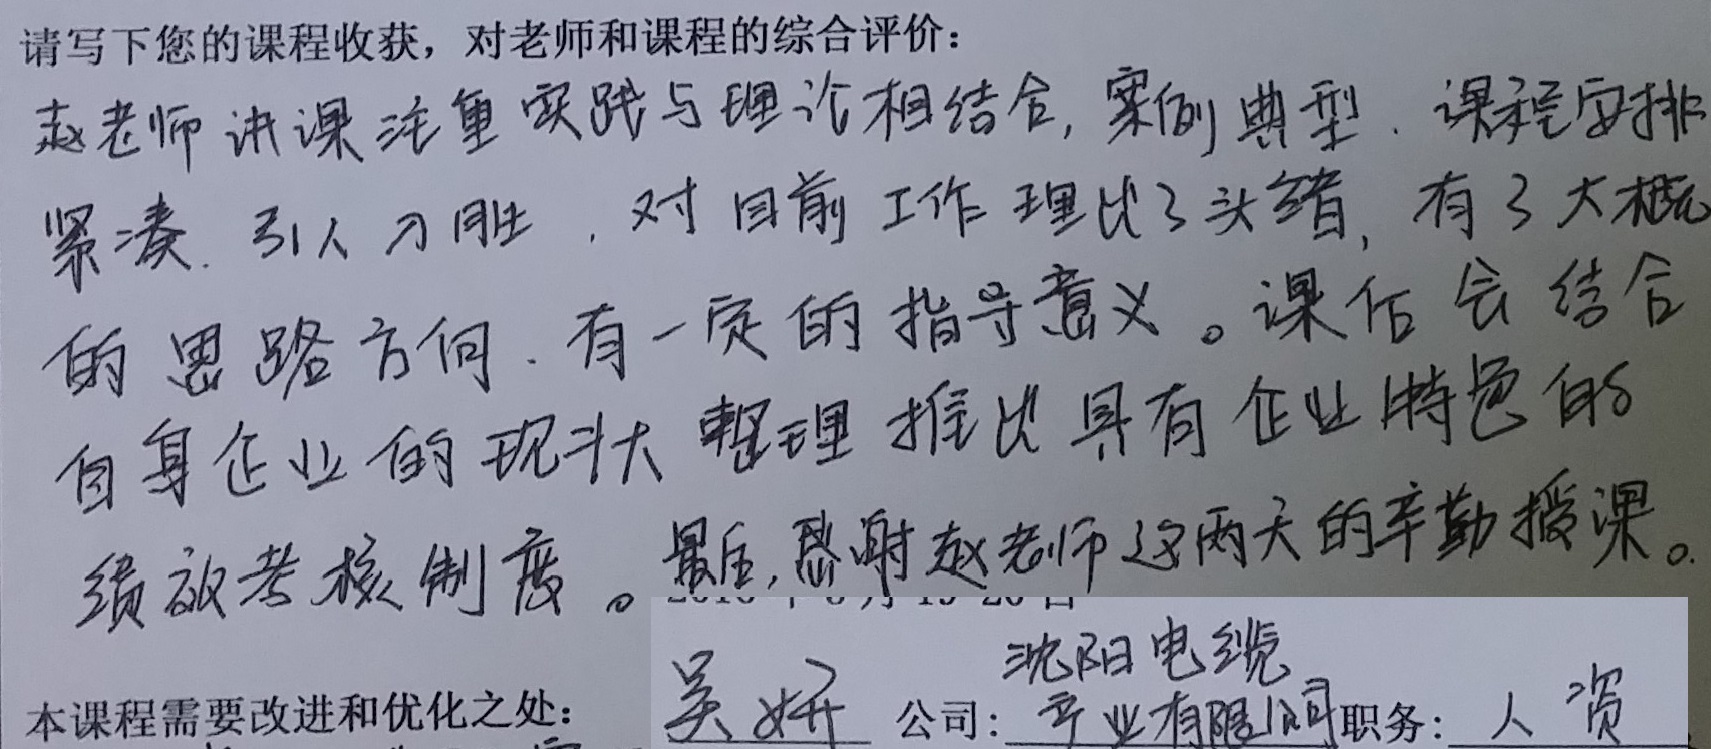 请写下您的课程收获，对老师和课程的综合评价：
赵老师讲课注重实践与理论相结合，案例典型．课程安排
紧凑．引人入胜．对目前工作理出了头绪，有了大概
的思路方向．有一定的指导意义。课后会结合
自身企业的现状整理推出具有企业特色的
绩效考核制度。最后，感谢赵老师这两天的辛勤授课。
沈阳电缆
吴妍 公司：产业有限公司 职务：人资
本课程需要改进和优化之处：